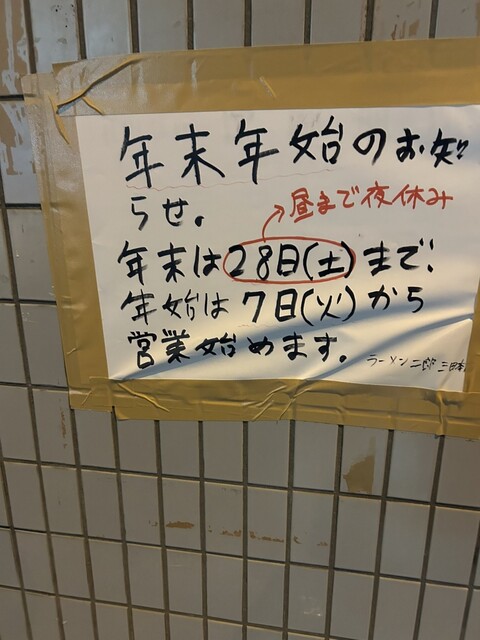 年末年始のお知
らせ。
昼まで夜休み
年末は28日(土)まで、
年始は7日(火)から
営業始めます。
ラーメン二郎 三田本